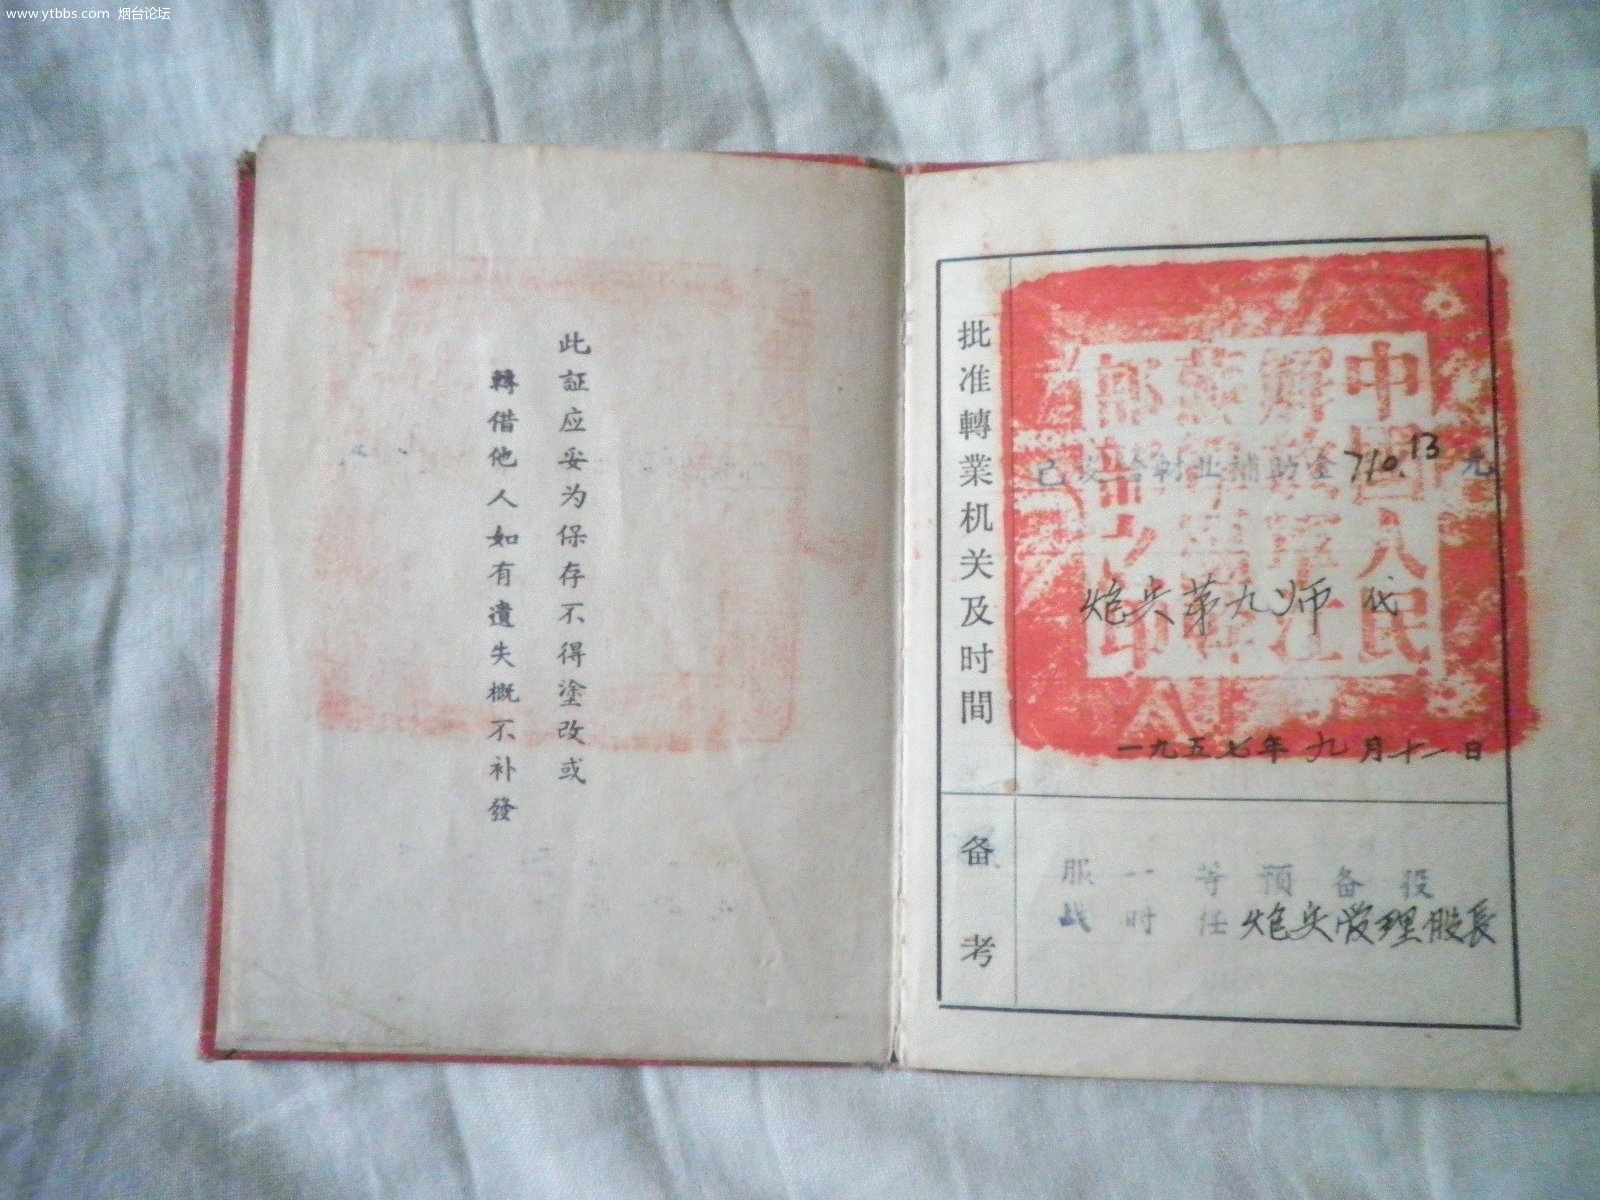 www.ytbbs.com 烟台论坛
此証应妥为保存不得塗改或
轉借他人如有遺失概不补發
批准轉業机关及时間
中國人民
解放軍江
蘇省軍區
部之印
已发给轉业補助金710.13元
炮兵第九师 代
一九五七年九月十一日
备考
服一等預备役
战时任炮兵管理股長